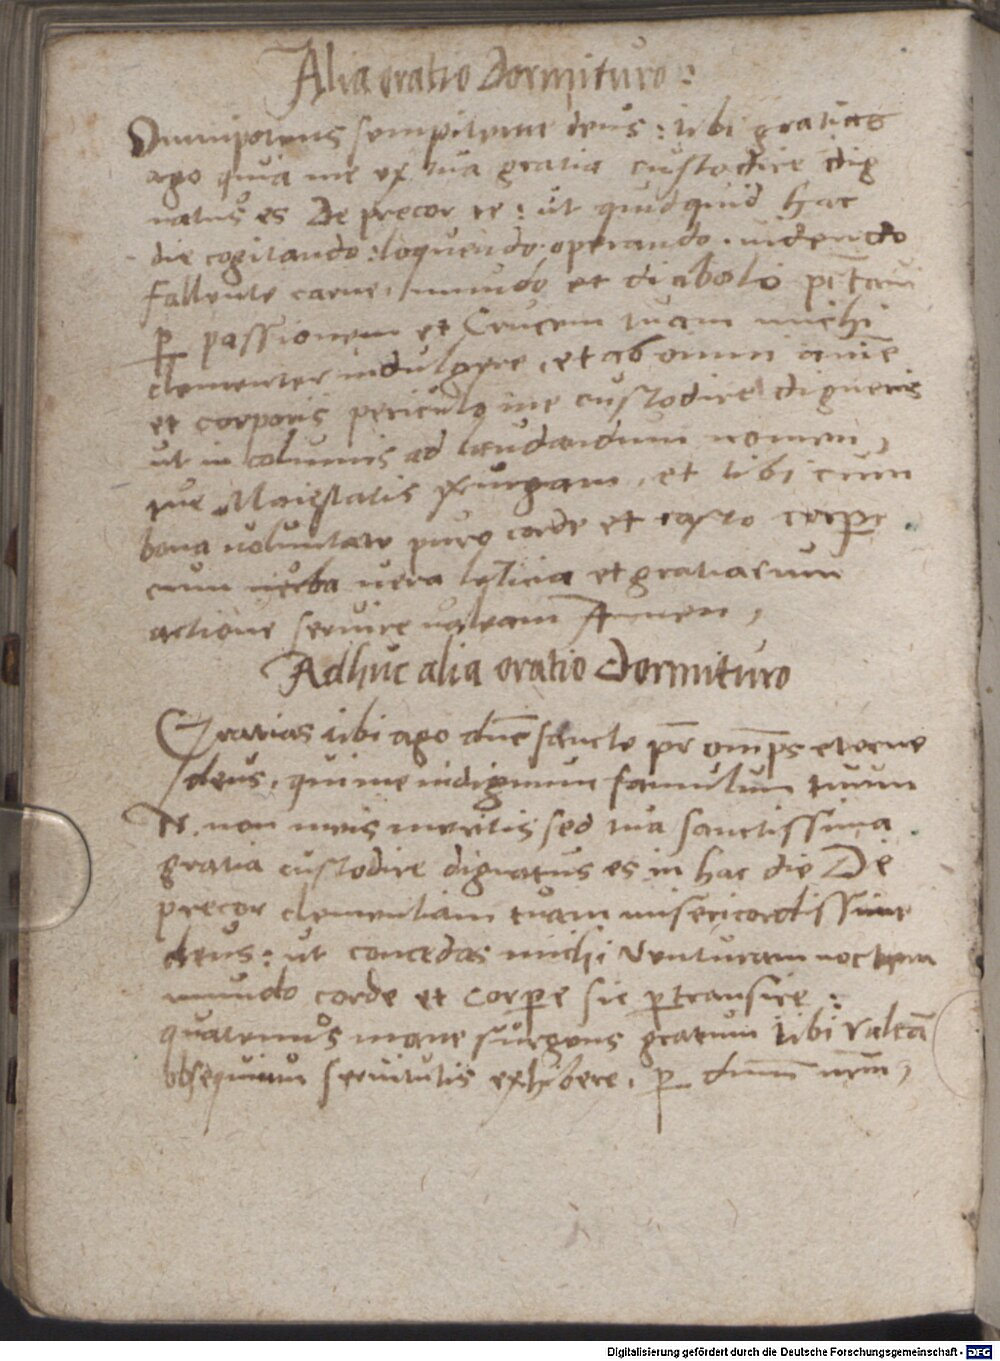 Alia oratio Dormituro:
Omnipotens sempiterne deus: tibi gratias
ago quia me ex tua gratia custodire dig
natus es De precor te: ut quidquid hac
die cogitando: loquendo. operando. videndo
fallente carne, mundo et diabolo pctavi
p passionem et Crucem tuam michi
clementer indulgere, et ab omni anie
et corporis periculo me custodire digneris
ut in columis ad laudandum nomen,
tue Maiestatis exurgam, et tibi cum
bona voluntate puro corde et casto corpe
cum verba vera leticia et gratiarum
actione servire valeam Amen,
Adhuc alia oratio Dormituro
Gratias tibi ago dne sancte pr omps eterne
deus, qui me indignum famulum tuum
N. non meis meritis sed tua sanctissima
gratia custodire dignatus es in hac die De
precor clementiam tuam misericordissime
deus: ut concedas michi Venturam noctem
mundo corde et corpe sic ptransire:
quatenus mane surgens gratum tibi valeã
obsequium servitutis exhibere. p dnum nrm,
Digitalisierung gefördert durch die Deutsche Forschungsgemeinschaft - DFG